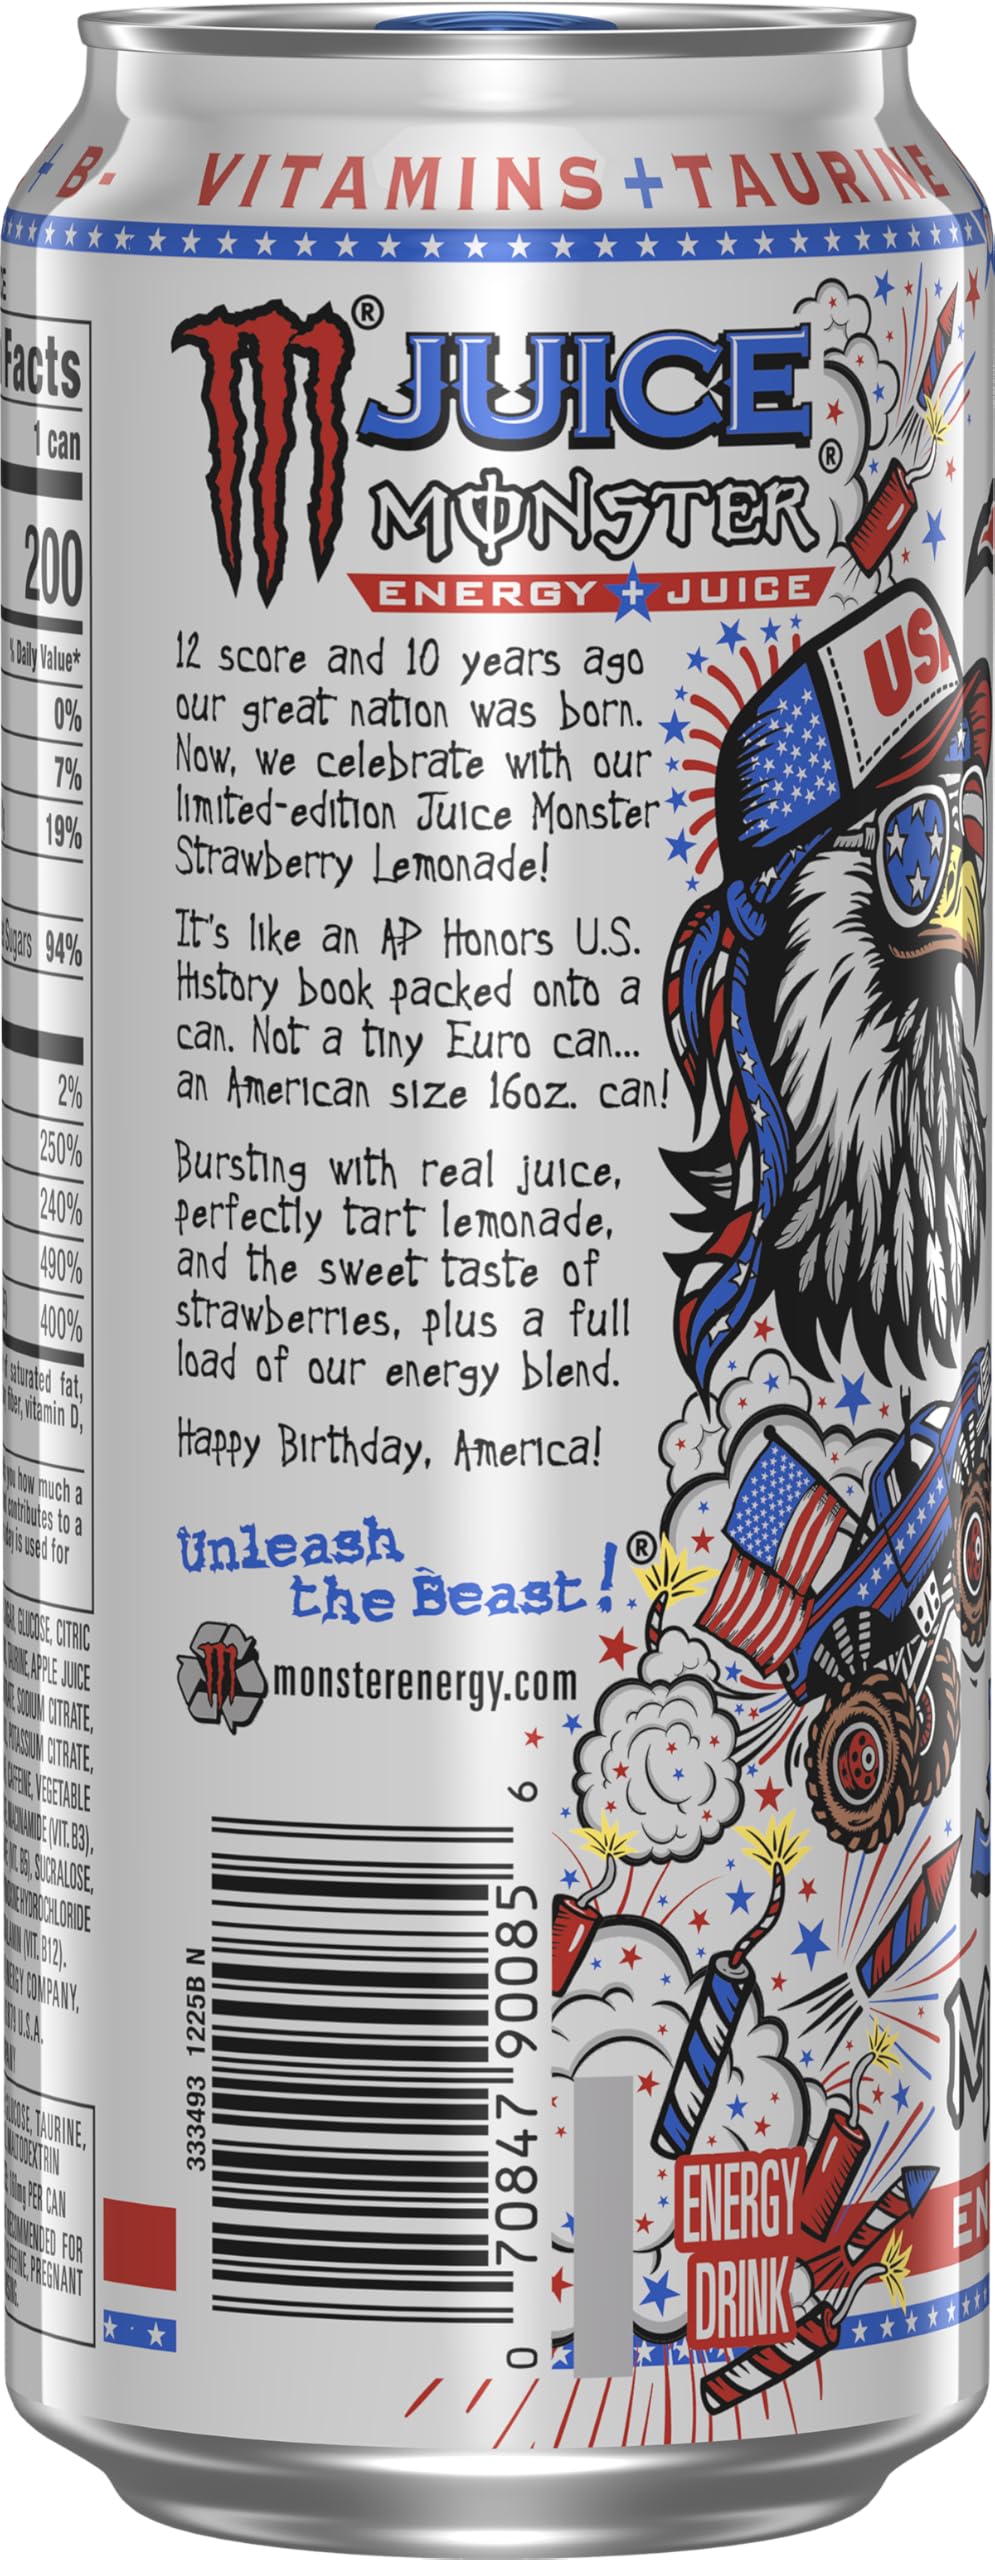 B- VITAMINS + TAURINE
Facts
1 can
200
% Daily Value*
0%
7%
19%
Sugars 94%
2%
250%
240%
490%
400%
saturated fat,
fiber, vitamin D,
you how much a
contributes to a
day is used for
GLUCOSE, CITRIC
TAURINE, APPLE JUICE
SODIUM CITRATE,
POTASSIUM CITRATE,
CAFFEINE, VEGETABLE
NIACINAMIDE (VIT. B3),
SUCRALOSE,
HYDROCHLORIDE
(VIT. B12).
COMPANY,
U.S.A.
GLUCOSE, TAURINE,
MALTODEXTRIN
PER CAN
RECOMMENDED FOR
CAFFEINE, PREGNANT
®
JUICE
®
MONSTER
ENERGY + JUICE
12 score and 10 years ago
our great nation was born.
Now, we celebrate with our
limited-edition Juice Monster
Strawberry Lemonade!
It's like an AP Honors U.S.
History book packed onto a
can. Not a tiny Euro can...
an American size 16oz. can!
Bursting with real juice,
perfectly tart lemonade,
and the sweet taste of
strawberries, plus a full
load of our energy blend.
Happy Birthday, America!
Unleash
the Beast! ®
monsterenergy.com
333493 1225B N
0 70847 90085 6
USA
ENERGY
DRINK
M
EN